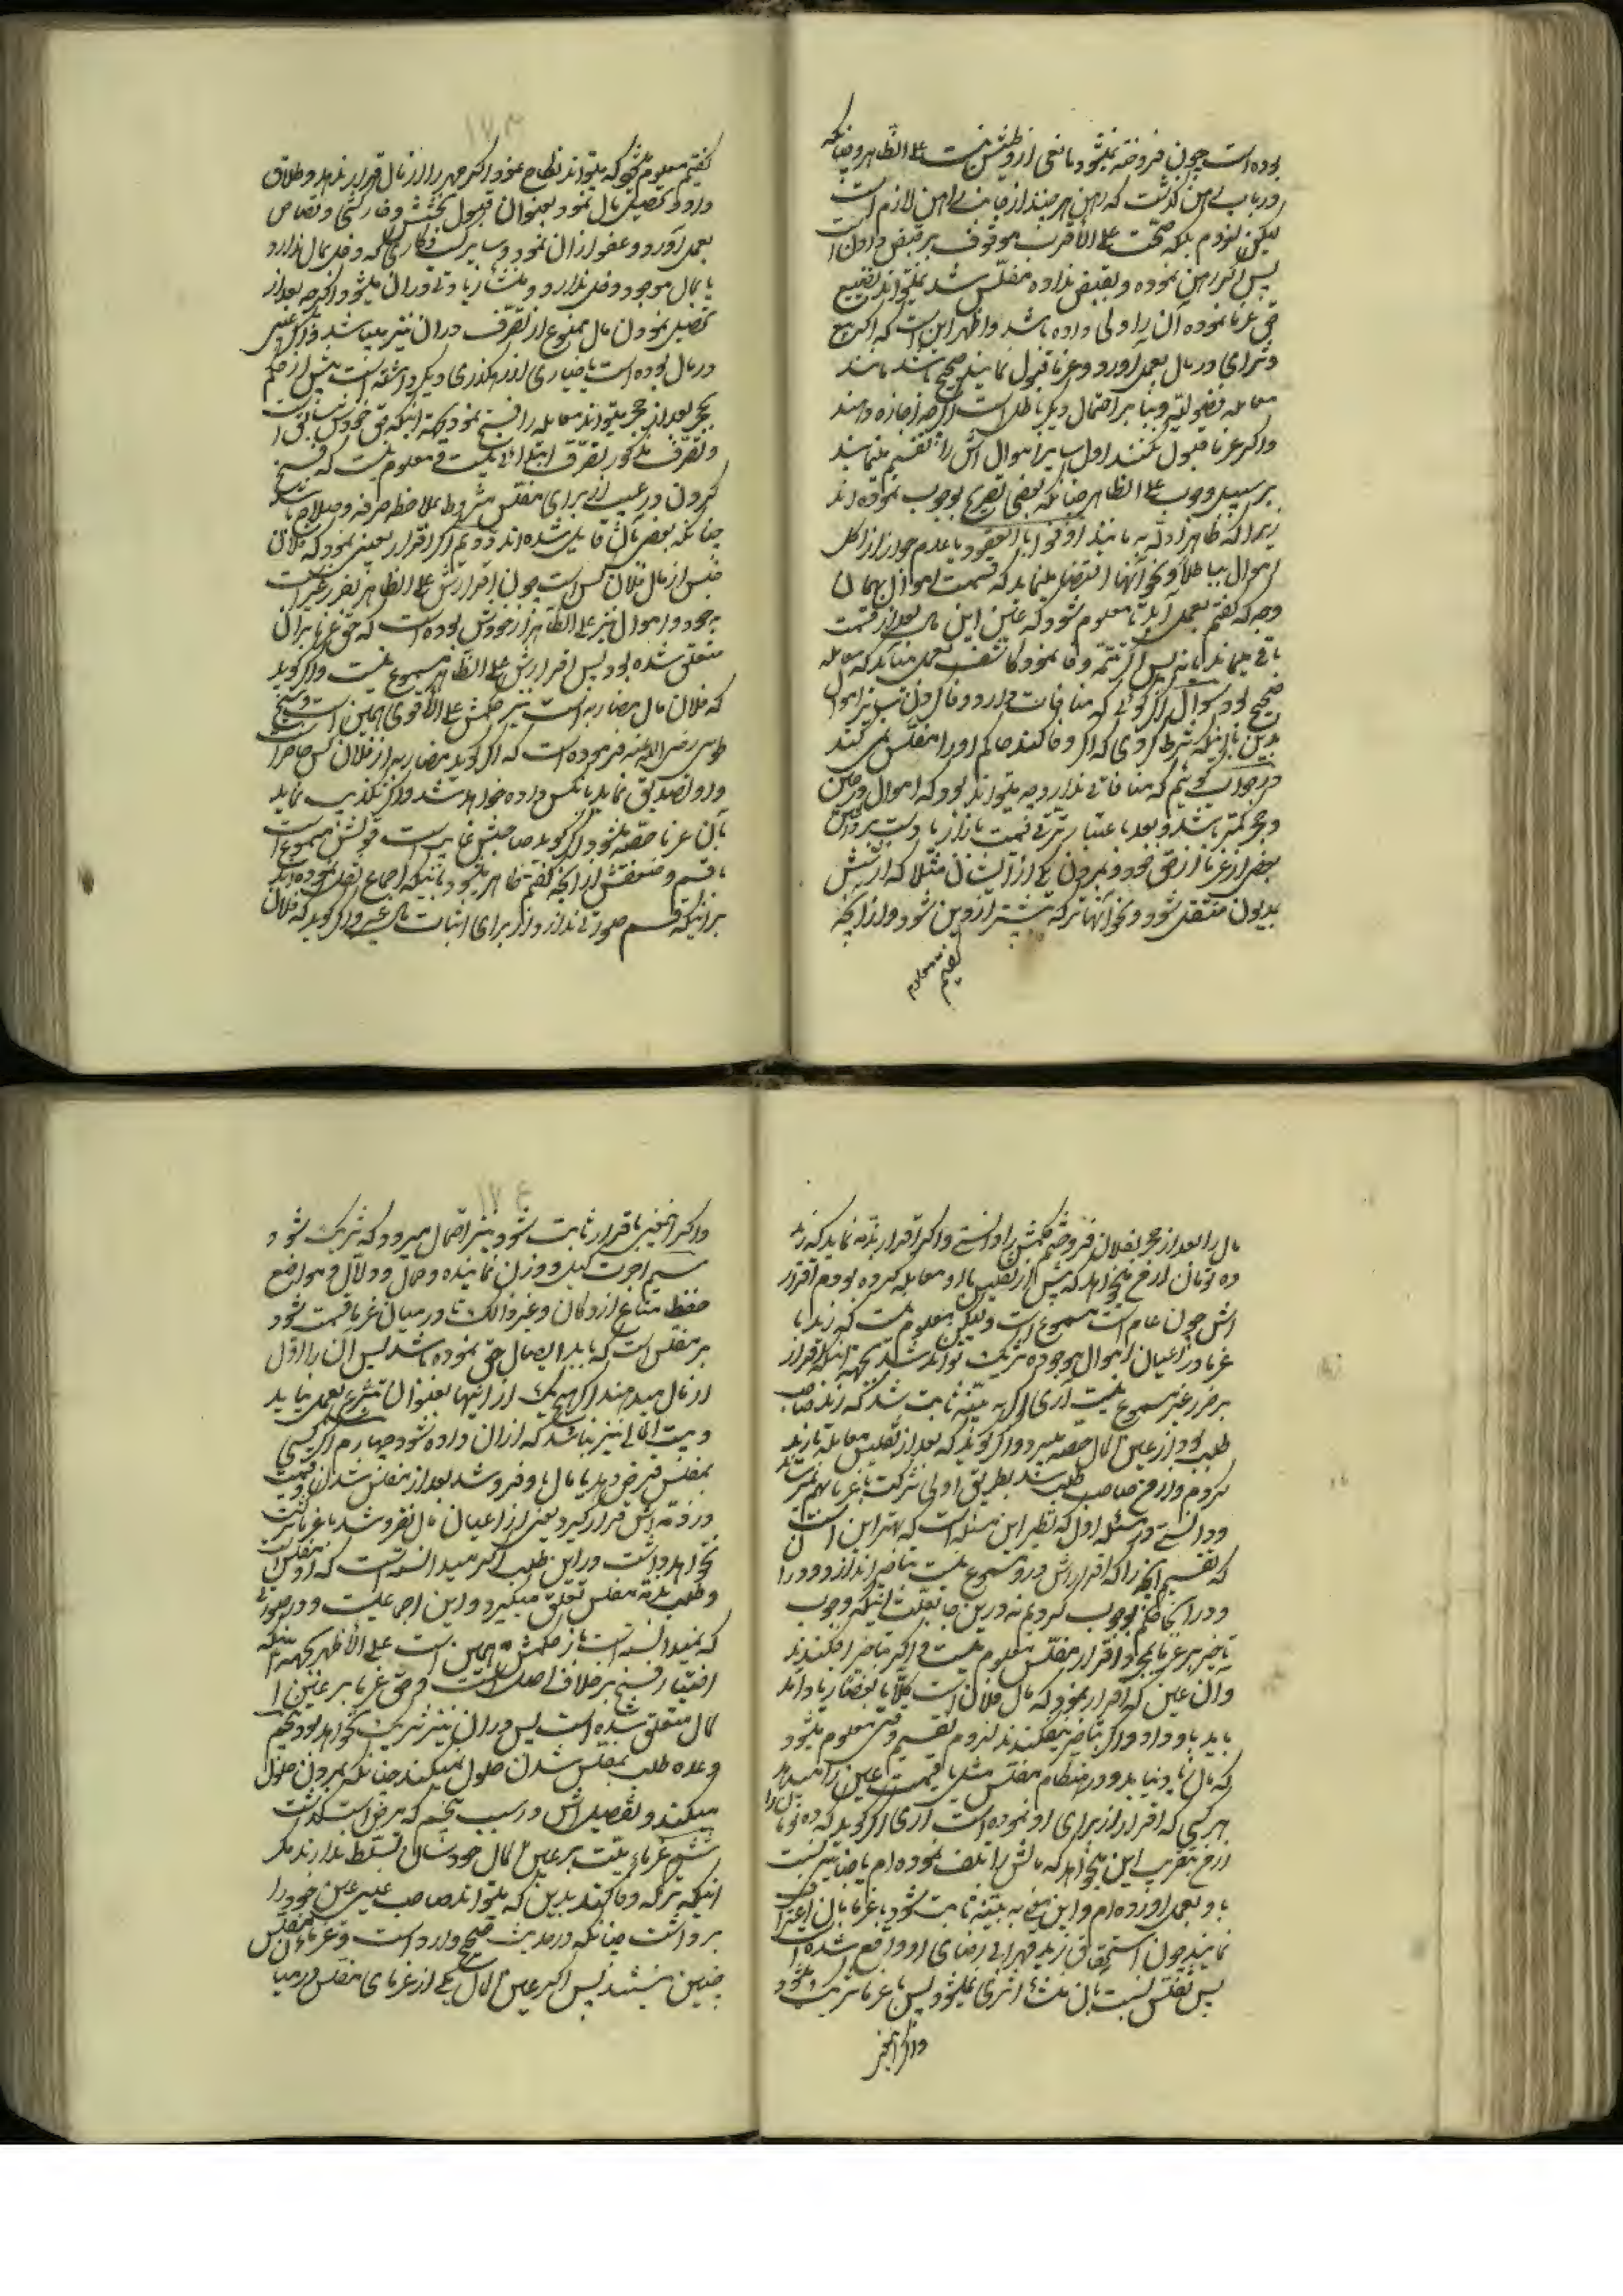 بوده است چون فروخته نمیشود مانعی از وطیش نیست علی الظاهر و چنانکه
در باب رهن گذشت که رهن هر چند از جانب راهن لازم است
لیکن لزوم بلکه صحت علی الاقرب موقوف بر قبض دادن است
پس اگر رهن نموده و بقبض نداده مفلس شد نمیتواند تضییع
حق غرما نموده آن را ولی داده باشد و اظهر این است که اگر بیع
و شرای در مال بعمل آورد و غرما قبول نمایند صحیح باشد مانند
معامله فضولیه و بنا بر احتمال دیگر باطل است اگر چه اجازه دهند
و اگر غرما قبول نکنند اول سایر اموال اش را تقسیم مینمایند
بر سبیل وجوب علی الظاهر چنانکه بعضی تصریح بوجوب نموده اند
زیرا که ظاهر ادله به مانند اوفوا بالعقود با عدم جواز اکل
اموال بباطل و نحو آنها اقتضا مینماید که قسمت اموال بهمان
وجه که گفتم بعمل آید تا معلوم شود که عین این مال بعد از قسمت
باقی میماند یا نه پس اگر تتمه وفا نمود کاشف بعمل میآید که معامله
صحیح بود سوال اگر گوئی که منافات دارد وفا کردن سایر اموال
بدین با اینکه شرط کردی که اگر وفا کند حاکم او را مفلس نمی کند
در جواب گوئیم که منافاتی ندارد چه میتواند بود که اموال در حین
حجر کمتر باشد و بعد باعتبار ترقی قیمت بازار یا دست برداشتن
بعضی از غرما از حق خود و بمردن یکی از ایشان مثلا که ارثش
بمدیون منتقل شود و نحو آنها ترکه بیشتر از دین شود و از آنچه
گفتیم معلوم
۱۷۳
گفتیم معلوم میشود که میتواند نکاح نمود اگر مهر را از مال قرار ندهد و طلاق
داد و تحصیل مال نمود بعنوان قبول بخشش و خارکنی و قصاص
بعمل آورد و عفو از آن نمود و سایر کسب و کاری که دخل بمال ندارد
یا بمال موجود دخل ندارد و منشاء زیادتی در آن میشود اگر چه بعد از
تحصیل نمودن مال ممنوع از تصرف در آن نیز میباشد و اگر عیبی
در مال بوده است یا خیاری از رهگذری دیگر داشته است پیش از حکم
بحجر بعد از حجر میتواند معامله را فسخ نمود بجهة اینکه حق خودش سابق است
و تصرف مذکور تصرف ابتدائی نیست و معلوم نیست که فسخ
کردن در عیب از برای مفلس مشروط بملاحظه صرفه و صلاح باشد
چنانکه بعضی بآن قایل شده اند دویم اگر اقرار بعینی نمود که فلان
جنس از مال فلان کس است چون اقرارش علی الظاهر بضرر غیر است
بوجود و اموال نیز علی الظاهر از خودش بوده است که حق غرما بر آن
متعلق شده بود پس اقرارش علی الظاهر مسموع نیست و اگر گوید
که فلان مال مضاربه است نیز حکمش علی الاقوی همین است و شیخ
طوسی رضی الله عنه فرموده است که اگر گوید مضاربه از فلان کس حاضر است
و او تصدیق نماید بآنکس داده خواهد شد و اگر تکذیب نماید
بآن غرما حصه میشود و اگر گوید صاحبش غایب است قولش مسموع است
با قسم و ضعفش از آنچه گفتم ظاهر میشود با اینکه اجماع نقل نموده اند
بر اینکه قسم صورتی ندارد از برای اثبات مال غیر و اگر گوید که فلان
مال را بعد از حجر بفلان فروختم حکمش را دانستی و اگر اقرار بذمه نماید که زید
ده تومان از من میخواهد که پیش از تفلیس با او معامله کرده بودم اقرار
اش چون عام است مسموع است ولیکن معلوم نیست که زید با
غرما در اعیان اموال موجوده شریک تواند شد بجهة اینکه اقرار
بر ضرر غیر مسموع نیست آری اگر به بینه ثابت شد که زید صاحب
طلب بود از عین المال حصه میبرد و اگر گوید که بعد از تفلیس معامله با زید
کردم و از من صاحب طلب شد بطریق اولی شرکت با غرما بهم نمیرساند
و دانستی در مسئله اول که نظیر این مسئله است که بهتر این است
که تقسیم آنچه را که اقرارش در او مسموع نیست بتاخیر اندازد
و در آنجا حکم بوجوب کردیم نه در این جا بعلت اینکه وجوب
تاخیر بر غرما بمجرد اقرار مفلس معلوم نیست و اگر بتاخیر افکندند
و آن عین که اقرار نمود که مال فلان است کلا یا بعضا زیاد آمد
باید باو داد و اگر بتاخیر نیفکندند لزوم تقسیم وقتی معلوم میشود
که مال زاید بیاید و در هنگام مفلس مثل یا قیمت عین را میدهد
بهر کسی که اقرار از برای او نموده است آری اگر گوید که ده تومان
از من بتقریب این میخواهد که مالش را تلف نموده ام یا جنایتی نسبت
باو بعمل آورده ام و این معنی به بینه ثابت شود یا غرما بآن اعتراف
نمایند چون استحقاق زید قهرا بی رضای او واقع شده است
پس تفلیس نسبت بآن منشاء اثری نمیشود پس با غرما شریک میشود
و اگر آنچنین
۱۷۴
و اگر اینچنین باقرار ثابت شود نیز احتمال میرود که شریک شود
سیم اجرت کیل و وزن نماینده و حمال و دلال و مواضع
حفظ متاع از دکان و غیر ذالک تا در میان غرما قسمت شود
بر مفلس است که باید ایصال حق نموده باشد پس آن را اول
از مال میدهند اگر هیچ یک از اینها بعنوان تبرع بعمل نیاید
و بیت المالی نیز نباشد که از آن داده شود چهارم اگر کسی
بمفلس قرض دهد یا مال باو فروشد بعد از مفلس شدن و قیمت
در ذمه اش قرار گیرد یعنی از اعیان مال نفروشد با غرما شرکت
نخواهد داشت در این طلب اگر میدانسته است که او مفلس است
و طلب بذمه مفلس تعلق میگیرد و این اجماعیست و در صورتی
که نمیدانسته است باز حکمش همین است علی الاظهر بجهة اینکه
اختیار فسخ بر خلاف اصل است و حق غرما بر عین
المال متعلق شده است پس در آن نیز شریک نخواهد بود پنجم
وعده طلب بمفلس شدن حلول نمیکند چنانکه بمردن حلول
میکند و تفصیل اش در سبب پنجم که مرض است گذشت
ششم غرماء میت بر عین المال خودشان تسلط ندارند مگر
اینکه ترکه وفا کند بدین که میتواند صاحب عین عین خود را
برداشت چنانکه در حدیث صحیح وارد است و غرماء مفلس
چنین نیستند پس اگر عین المال یکی از غرمای مفلس در میان